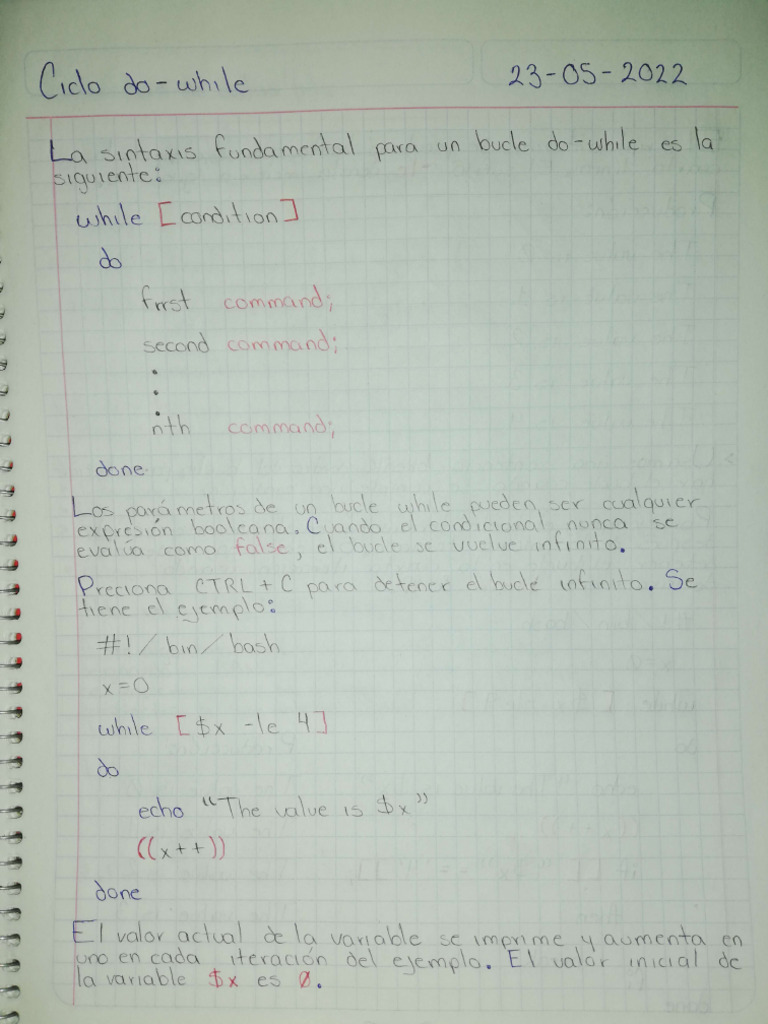 Ciclo do-while
23-05-2022
La sintaxis fundamental para un bucle do-while es la
siguiente:
while [condition]
do
first command;
second command;
.
.
.
nth command;
done
Los parámetros de un bucle while pueden ser cualquier
expresión booleana. Cuando el condicional nunca se
evalúa como false, el bucle se vuelve infinito.
Preciona CTRL + C para detener el bucle infinito. Se
tiene el ejemplo:
#!/bin/bash
x=0
while [$x -le 4]
do
echo “The value is $x”
((x++))
done
El valor actual de la variable se imprime y aumenta en
uno en cada iteración del ejemplo. El valor inicial de
la variable $x es 0.